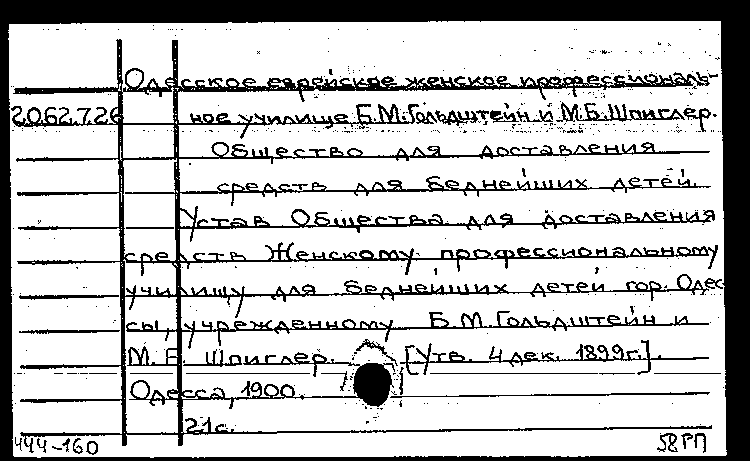 Одесское еврейское женское профессиональ-
2062.7.26 ное училище Б.М.Гольдштейн и М.Б.Шпиглер.
Общество для доставления
средств для беднейших детей.
Устав Общества для доставления
средств Женскому профессиональному
училищу для беднейших детей гор. Одес
сы, учрежденному Б.М.Гольдштейн и
М. Б. Шпиглер. [Утв. 4 дек. 1899г.].
Одесса, 1900.
21с.
444-160 58РП